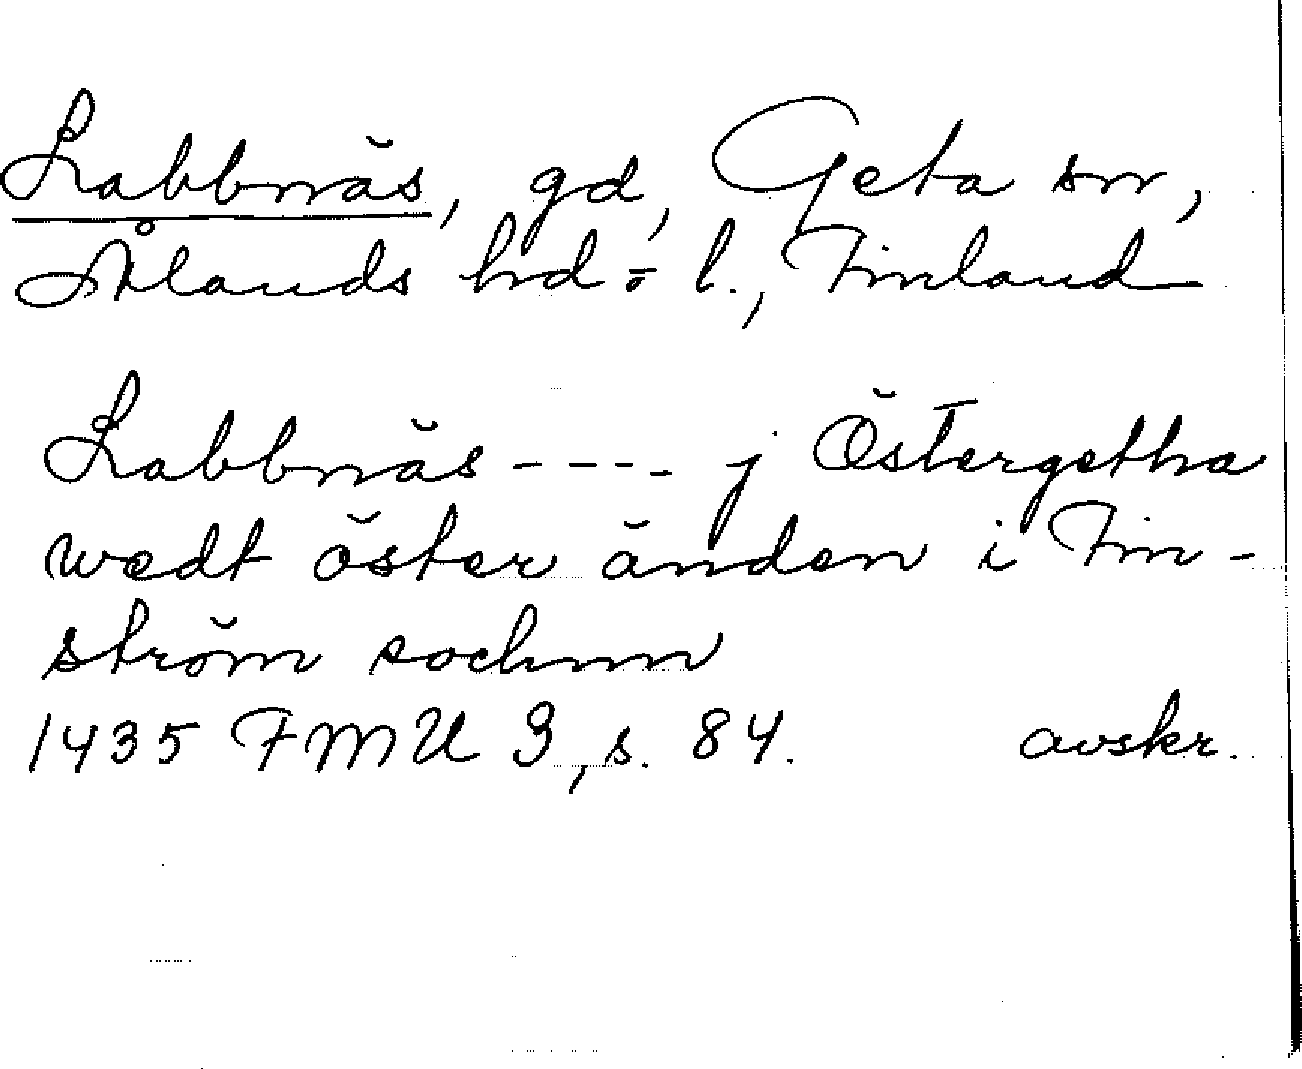 Labbnäs, gd, Geta sn,
Ålands hd o l., Finland
Labbnäs ---- j Östergetha
wedt öster änden i Fin-
ström sochnn
1435 FMU 3, s. 84. avskr.